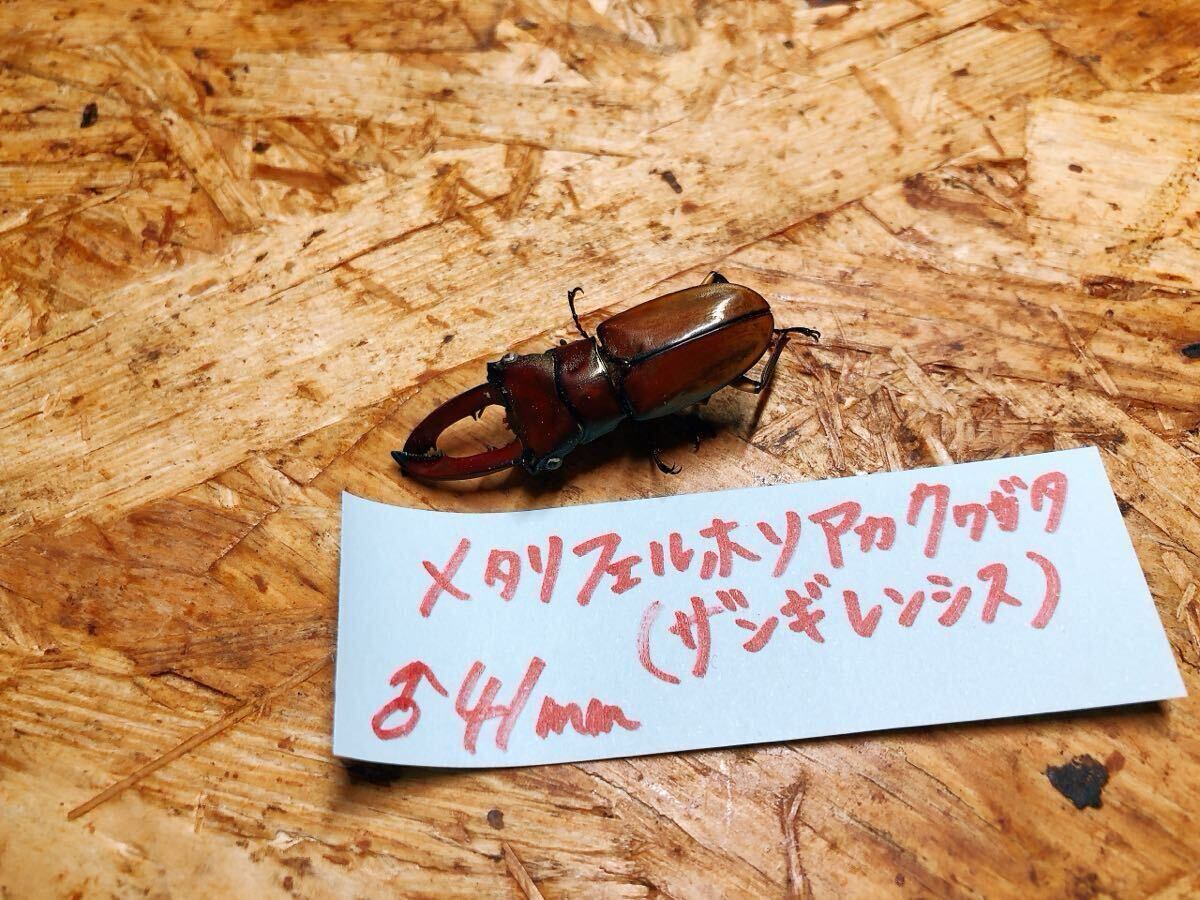 メタリフェルホソアカクワガタ
(ザンギレンシス)
♂41mm